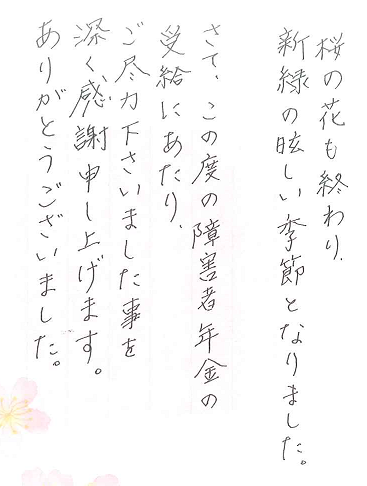 桜の花も終わり、
新緑の眩しい季節となりました。
さて、この度の障害者年金の
受給にあたり、
ご尽力下さいました事を
深く感謝申し上げます。
ありがとうございました。